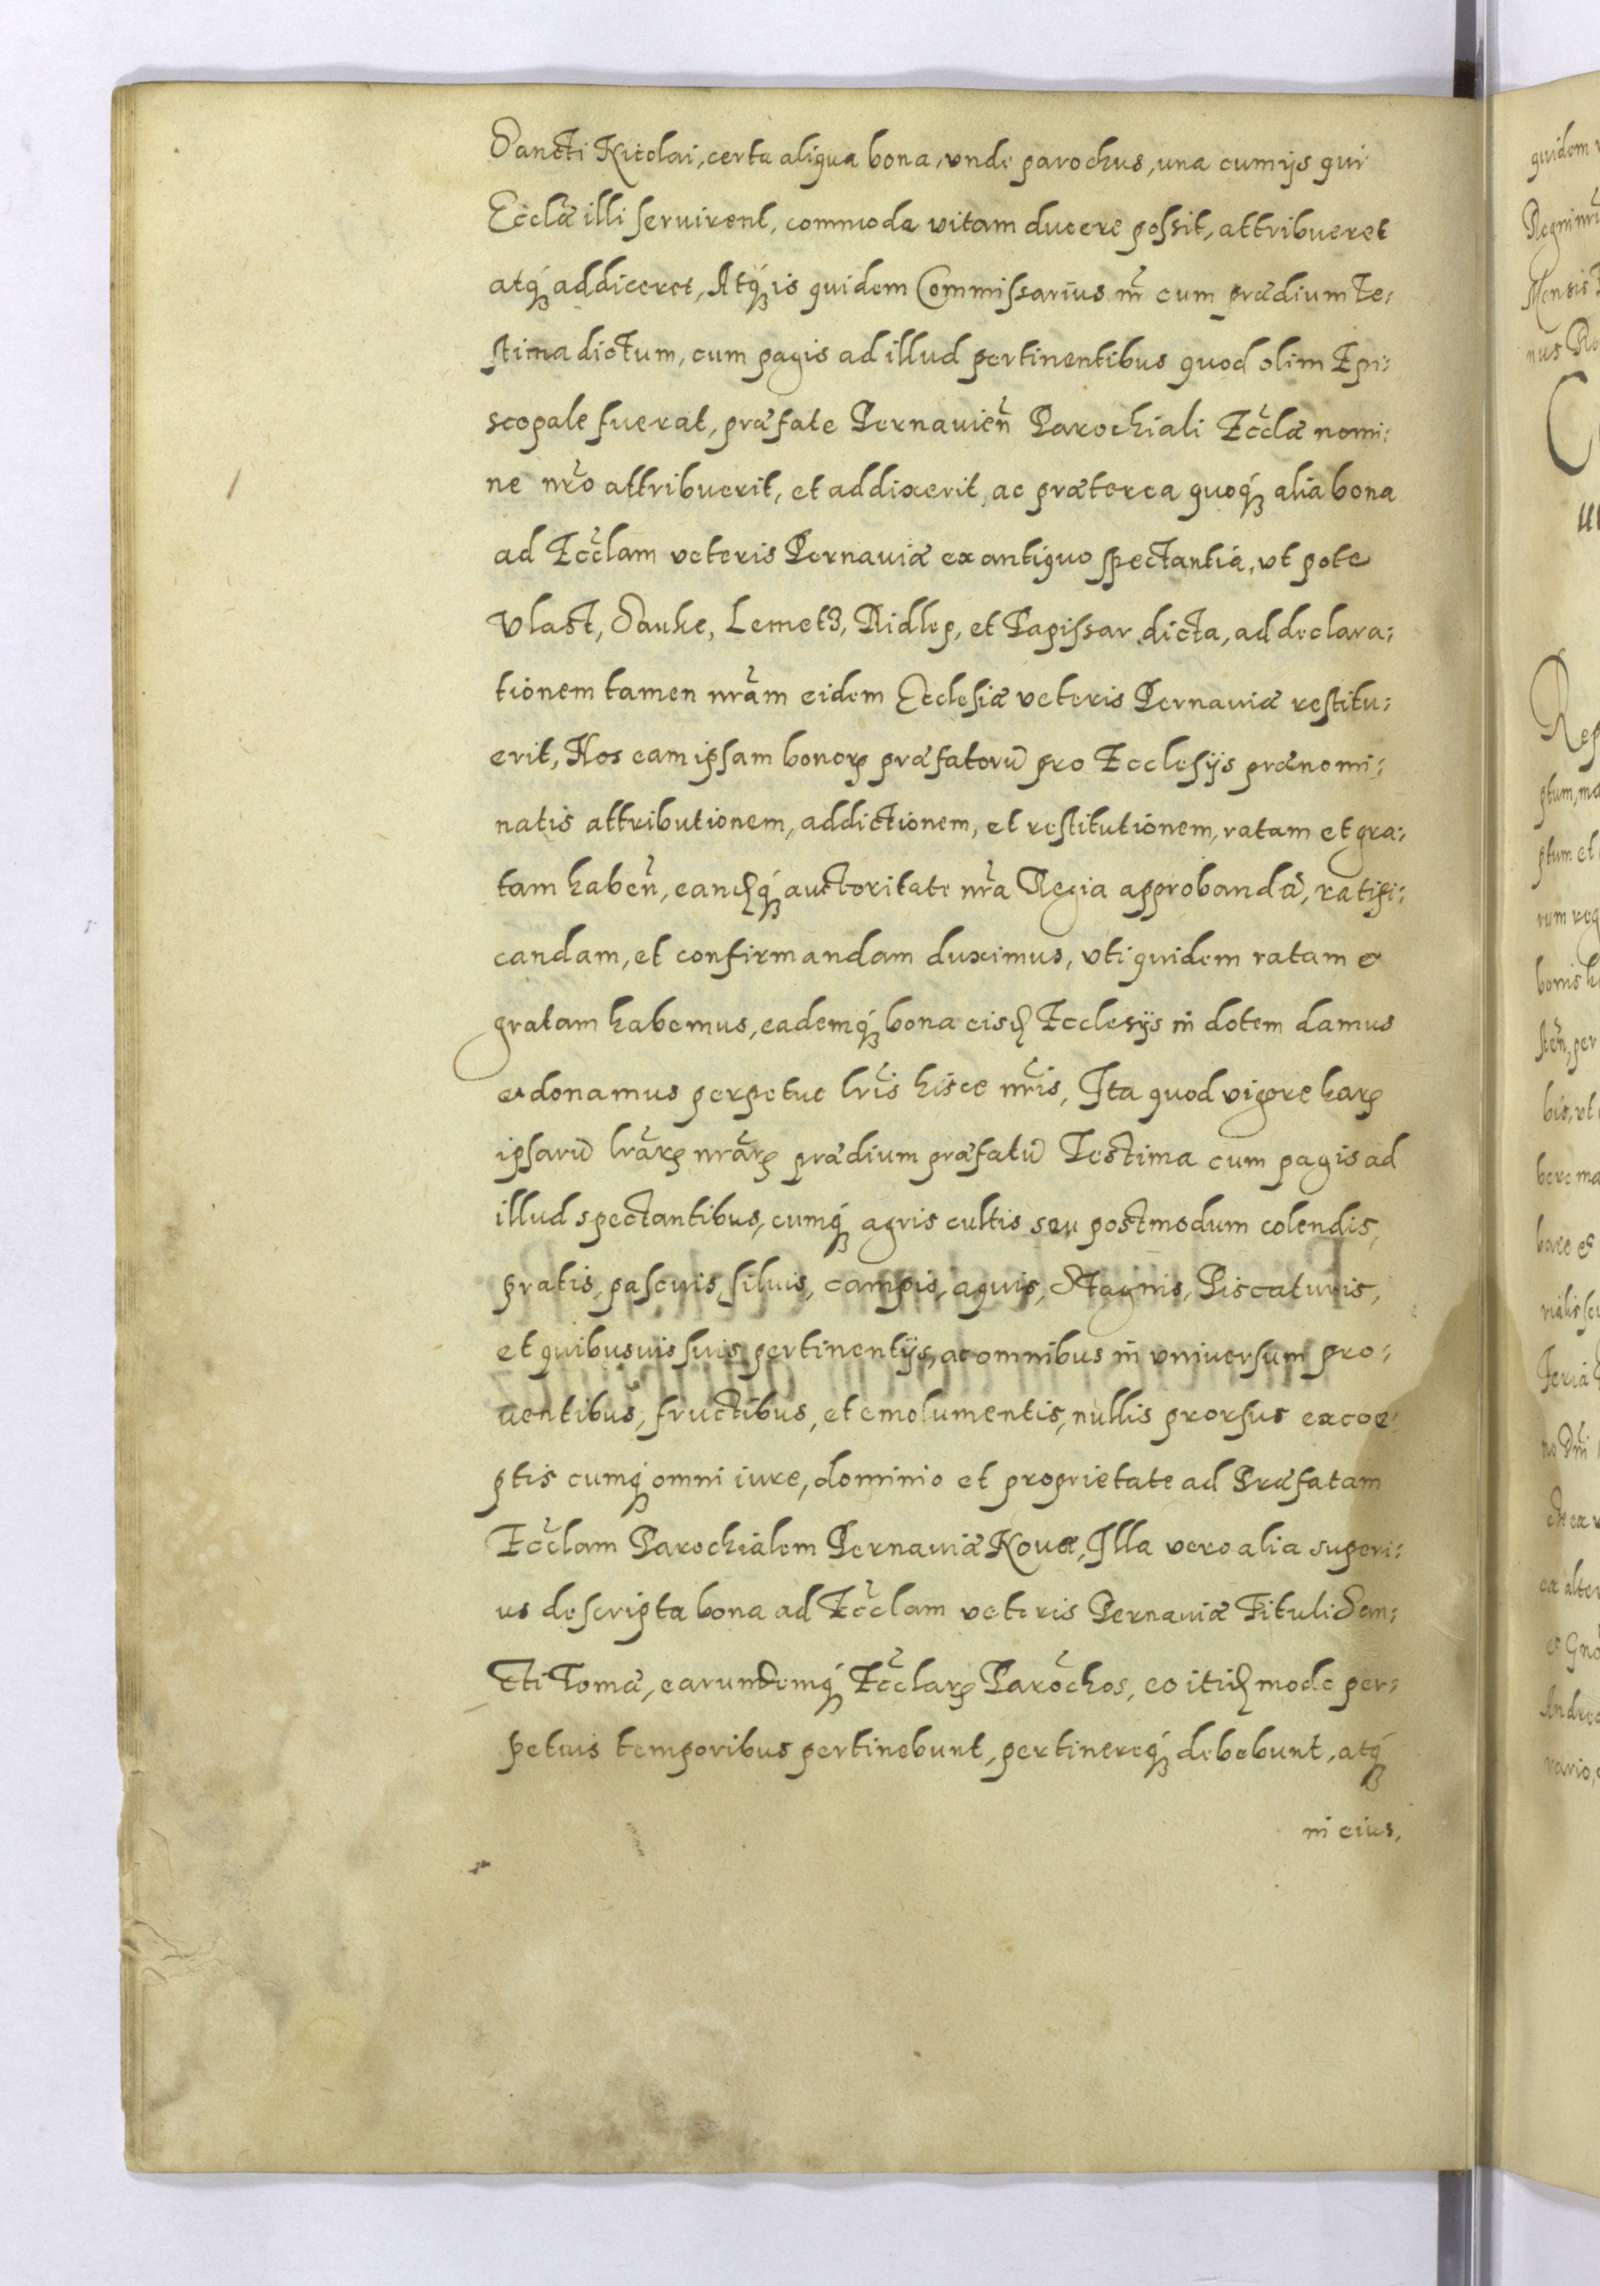 Sancti Nicolai, certa aliqua bona, vnde parochus, una cum ijs qui
Ecclæ illi seruirent, commode vitam ducere possit, attribueret
atq́ꝫ addiceret, Atq́ꝫ is quidem Commissarius nr̃ cum prædium Te⸗
stima dictum, cum pagis ad illud pertinentibus quod olim Epi⸗
scopale fuerat, præfate Pernauień Parochiali Ecclæ nomi⸗
ne nr̃o attribuerit, et addixerit, ac præterea quoq́ꝫ alia bona
ad Eccl̃am veteris Pernauiæ ex antiquo spectantia, vt pote
Vlast, Sauke, Lemetz, Ridlep, et Papissar dicta, ad declara⸗
tionem tamen nr̃am eidem Ecclesiæ veteris Pernauiæ restitu⸗
erit, Nos eam ipsam bonorꝝ præfatorũ pro Ecclesijs prænomi⸗
natis attributionem, addictionem, et restitutionem, ratam et gra⸗
tam habeñ, eandq́ꝫ auctoritate nr̃a Regia approbandã, ratifi⸗
candam, et confirmandam duximus, vti quidem ratam &
gratam habemus, eademq́ꝫ bona eisd Ecclesijs in dotem damus
& donamus perpetue lr̃is hisce nr̃is, Ita quod vigore harꝝ
ipsarũ lr̃arꝝ nr̃arꝝ prædium præfatũ Testima cum pagis ad
illud spectantibus, cumq́ꝫ agris cultis seu postmodum colendis,
pratis, pascuis, siluis, campis, aquis, Stagnis, Piscaturis,
et quibusuis suis pertinentijs, ac omnibus in vniuersum pro⸗
uentibus, fructibus, et emolumentis, nullis prorsus exce⸗
ptis cumq́ꝫ omni iure, dominio et proprietate ad Præfatam
Eccl̃am Parochialem Pernauiæ Nouæ, Illa vero alia superi⸗
us descripta bona ad Eccl̃am veteris Pernauiæ Tituli San⸗
cti Tomæ, earundemq́ꝫ Eccl̃arꝝ Parochos, eo itid modo per⸗
petuis temporibus pertinebunt, pertinereq́ꝫ debebunt, atq́ꝫ
in eius,